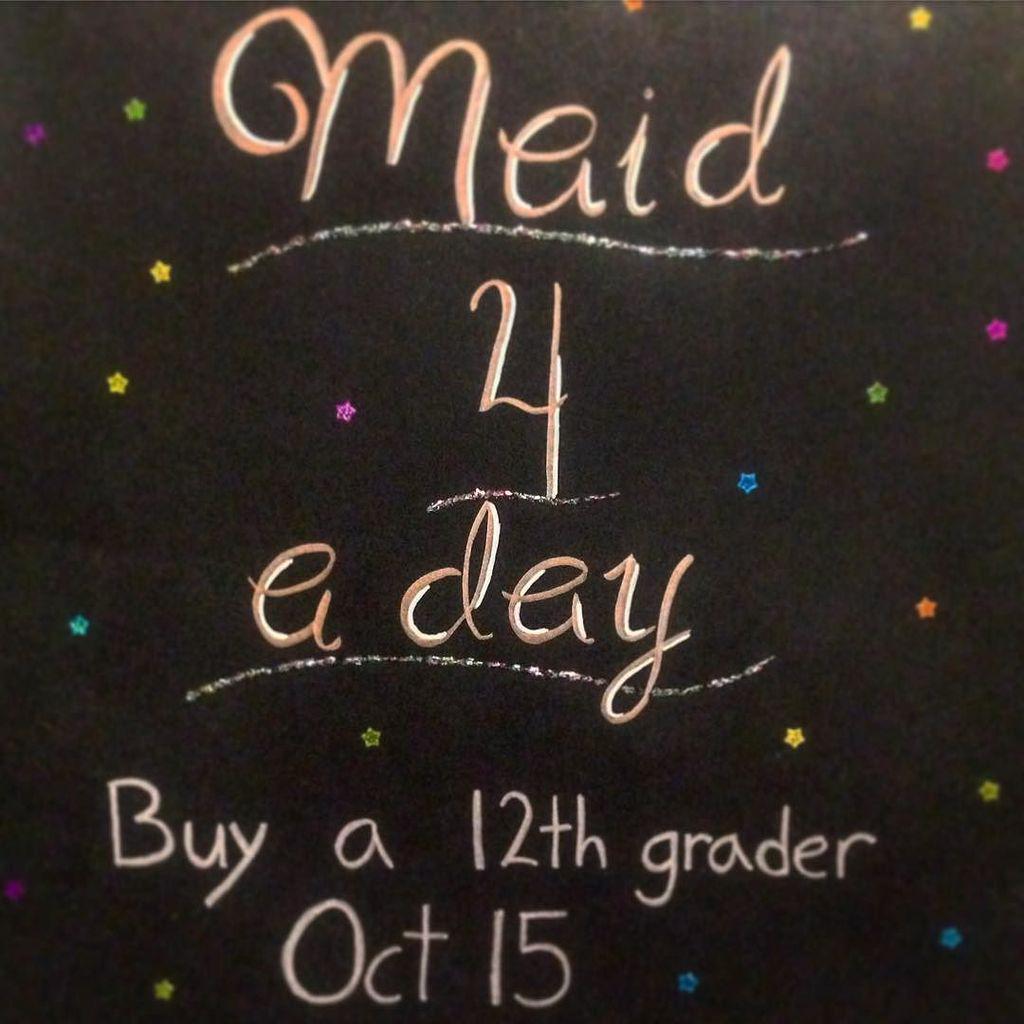 Maid
4
a day
Buy a 12th grader
Oct 15